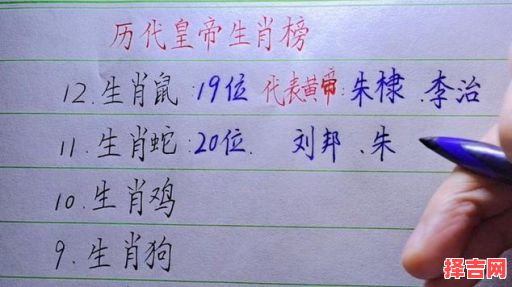 历代皇帝生肖榜
12.生肖鼠:19位 代表黄帝:朱棣.李治
11.生肖蛇:20位. 刘邦、朱
10.生肖鸡
9.生肖狗
择吉网